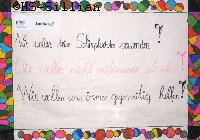 Wir wollen keine Schimpfwörter verwenden!
Wir wollen nicht miteinander streiten!
Wir wollen uns immer gegenseitig helfen!